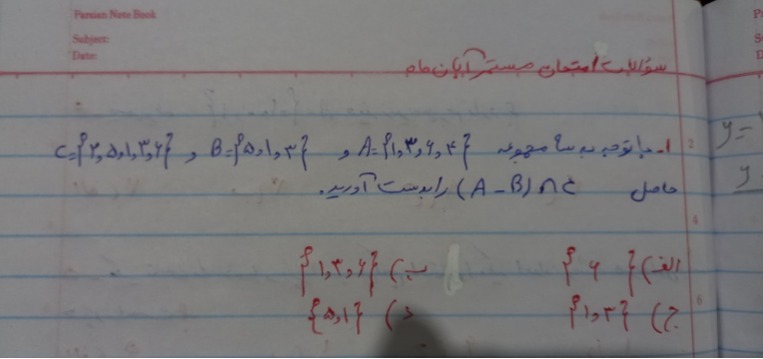 Parsian Note Book
Subject:
Date:
سوالات امتحان مستمر آبان ماه
۱- با توجه به سه مجموعه A={۱,۳,۶,۴} و B={۵,۱,۳} و C={۲,۵,۱,۳,۶}
حاصل (A-B)∩C را بدست آورید.
الف) {۶} ب) {۱,۳,۶}
ج) {۱,۳} د) {۵,۱}
y=
y
2
4
6